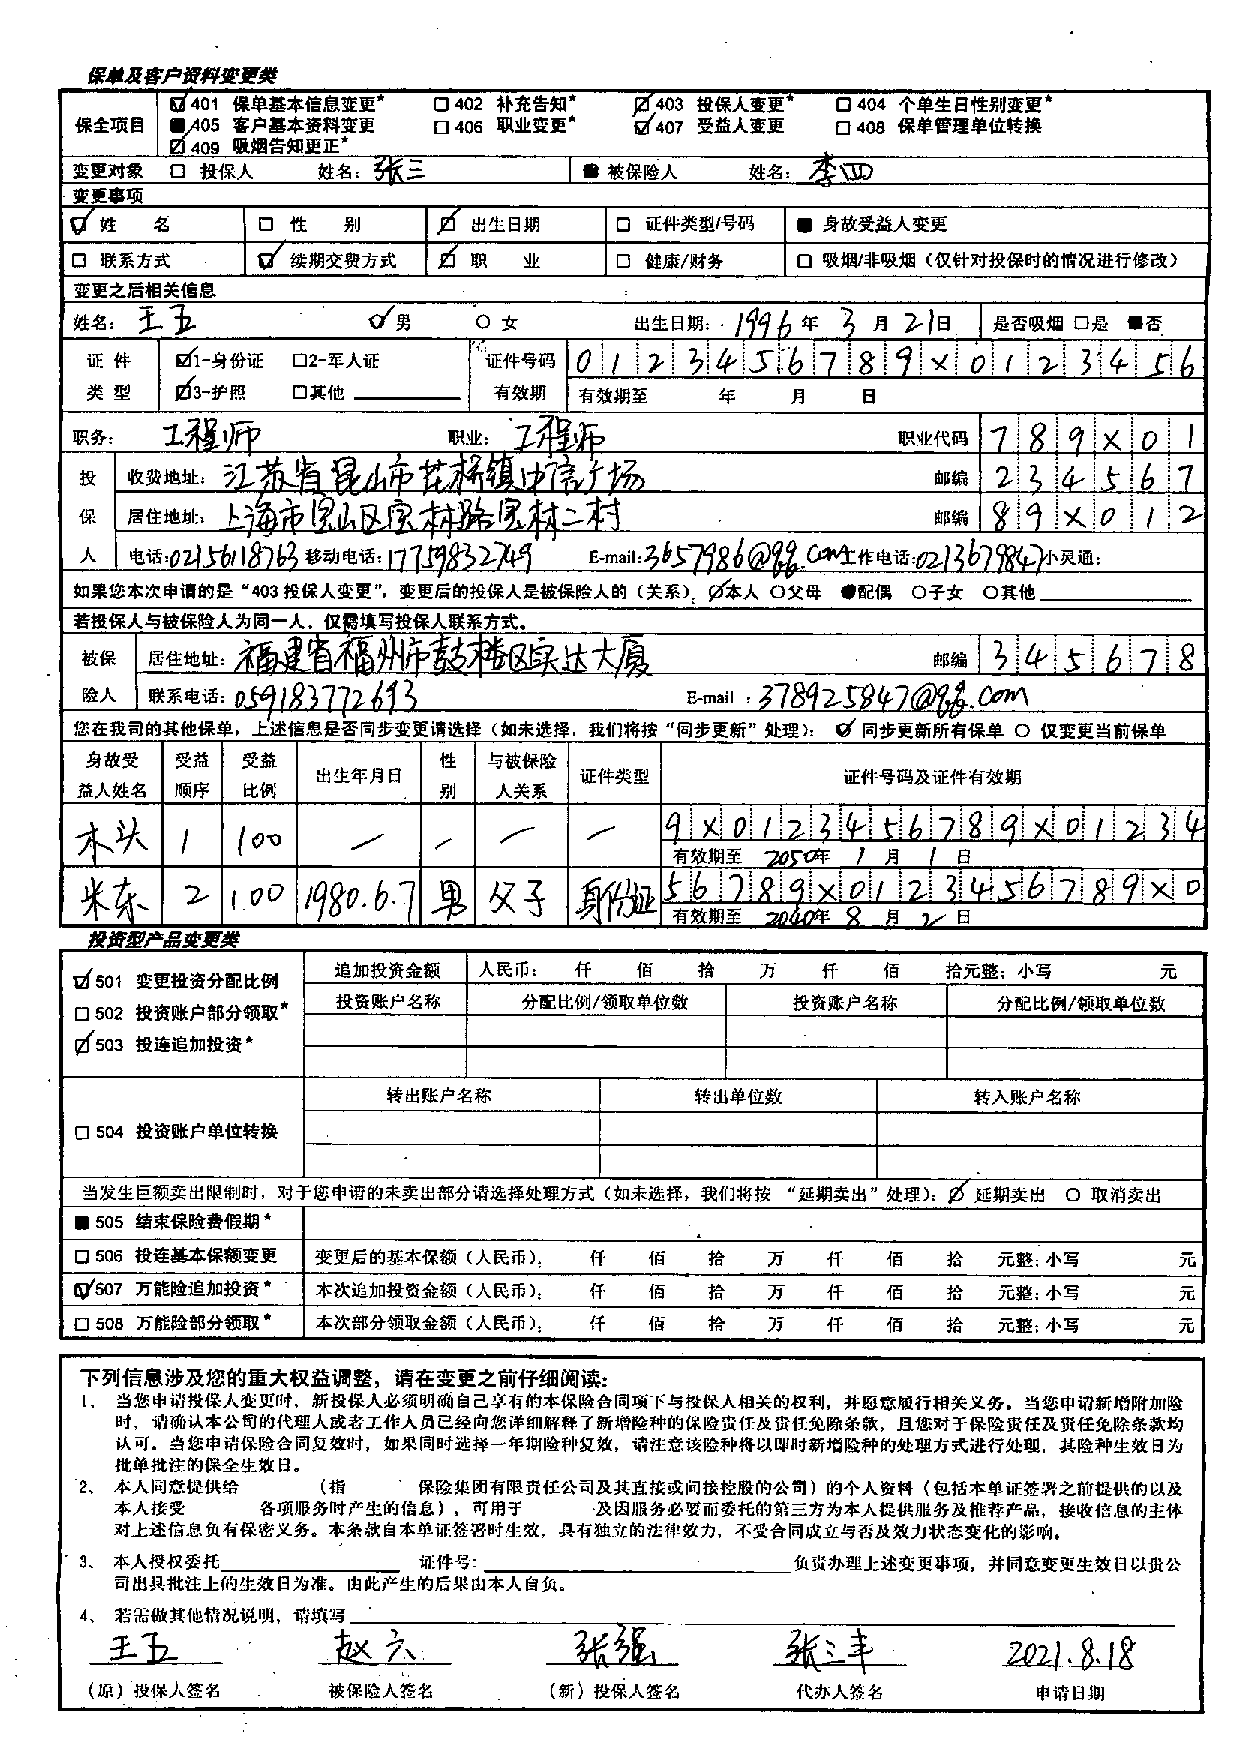 保单及客户资料变更类
保全项目 401 保单基本信息变更* 402 补充告知* 403 投保人变更* 404 个单生日性别变更*
405 客户基本资料变更 406 职业变更* 407 受益人变更 408 保单管理单位转换
409 吸烟告知更正*
变更对象 投保人 姓名：张三 被保险人 姓名：李四
变更事项
姓 名 性 别 出生日期 证件类型/号码 身故受益人变更
联系方式 续期交费方式 职 业 健康/财务 吸烟/非吸烟（仅针对投保时的情况进行修改）
变更之后相关信息
姓名：王五 男 女 出生日期：1996年3月21日 是否吸烟 是 否
证件类型 1-身份证 2-军人证 证件号码 0123456789X0123456
3-护照 其他 有效期 有效期至 年 月 日
职务：工程师 职业：工程师 职业代码 789X01
投保人 收费地址：江苏省昆山市花桥镇中信广场 邮编 234567
居住地址：上海市宝山区宝林路宝林二村 邮编 89X012
电话：02156118763 移动电话：17759832749 E-mail：3657986@qq.com 工作电话：0213679847 小灵通：
如果您本次申请的是“403投保人变更”，变更后的投保人是被保险人的（关系）：本人 父母 配偶 子女 其他
若投保人与被保险人为同一人，仅需填写投保人联系方式。
被保险人 居住地址：福建省福州市鼓楼区实达大厦 邮编 345678
联系电话：059183772693 E-mail：378925847@qq.com
您在我司的其他保单，上述信息是否同步变更请选择（如未选择，我们将按“同步更新”处理）：同步更新所有保单 仅变更当前保单
身故受益人姓名 受益顺序 受益比例 出生年月日 性别 与被保险人关系 证件类型 证件号码及证件有效期
木头 1 100 — — — — 9X0123456789X01234
有效期至 2050年1月1日
米东 2 100 1980.6.7 男 父子 身份证 56789X0123456789X0
有效期至 2040年8月2日
投资型产品变更类
501 变更投资分配比例 追加投资金额 人民币： 仟 佰 拾 万 仟 佰 拾元整；小写 元
502 投资账户部分领取* 投资账户名称 分配比例/领取单位数 投资账户名称 分配比例/领取单位数
503 投连追加投资*
转出账户名称 转出单位数 转入账户名称
504 投资账户单位转换
当发生巨额卖出限制时，对于您申请的未卖出部分请选择处理方式（如未选择，我们将按“延期卖出”处理）：延期卖出 取消卖出
505 结束保险费假期*
506 投连基本保额变更 变更后的基本保额（人民币）： 仟 佰 拾 万 仟 佰 拾 元整；小写 元
507 万能险追加投资* 本次追加投资金额（人民币）： 仟 佰 拾 万 仟 佰 拾 元整；小写 元
508 万能险部分领取* 本次部分领取金额（人民币）： 仟 佰 拾 万 仟 佰 拾 元整；小写 元
下列信息涉及您的重大权益调整，请在变更之前仔细阅读：
1、当您申请投保人变更时，新投保人必须明确自己享有的本保险合同项下与投保人相关的权利，并愿意履行相关义务。当您申请新增附加险
时，请确认本公司的代理人或者工作人员已经向您详细解释了新增险种的保险责任及责任免除条款，且您对于保险责任及责任免除条款均
认可。当您申请保险合同复效时，如果同时选择一年期险种复效，请注意该险种将以即时新增险种的处理方式进行处理，其险种生效日为
批单批注的保全生效日。
2、本人同意提供给 （指 保险集团有限责任公司及其直接或间接控股的公司）的个人资料（包括本单证签署之前提供的以及
本人接受 各项服务时产生的信息），可用于 及因服务必要而委托的第三方为本人提供服务及推荐产品，接收信息的主体
对上述信息负有保密义务。本条款自本单证签署时生效，具有独立的法律效力，不受合同成立与否及效力状态变化的影响。
3、本人授权委托 证件号： 负责办理上述变更事项，并同意变更生效日以贵公
司出具批注上的生效日为准。由此产生的后果由本人自负。
4、若需做其他情况说明，请填写
王五 赵六 张强 张三丰 2021.8.18
（原）投保人签名 被保险人签名 （新）投保人签名 代办人签名 申请日期